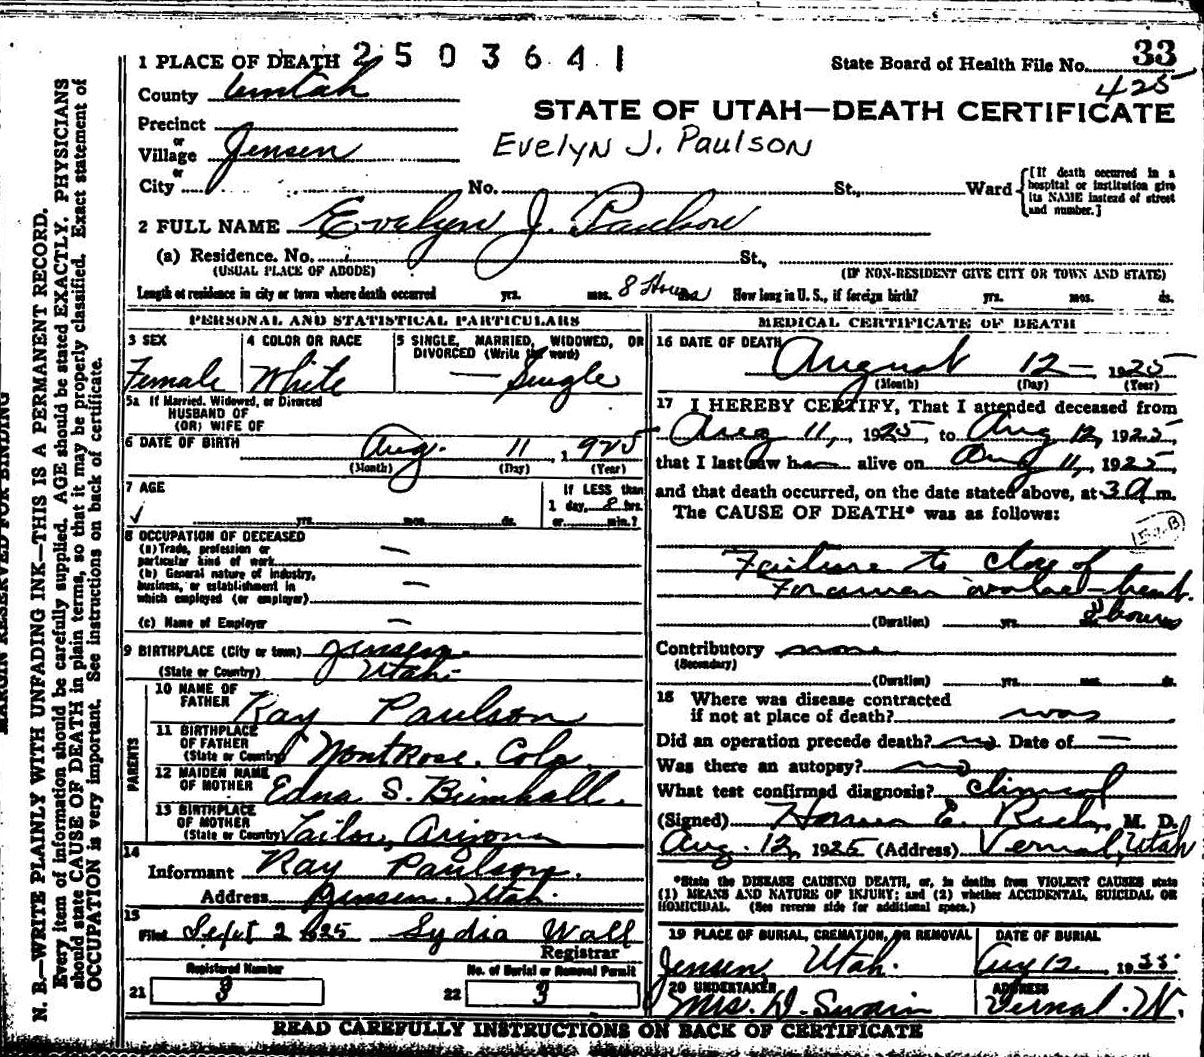 1 PLACE OF DEATH 2503641
State Board of Health File No. 33
425
County Uintah
STATE OF UTAH—DEATH CERTIFICATE
Precinct
or
Village Jensen
Evelyn J. Paulson
or
City No. St., Ward
[If death occurred in a hospital or institution give its NAME instead of street and number.]
2 FULL NAME Evelyn J. Paulson
(a) Residence. No. St.,
(USUAL PLACE OF ABODE) (IF NON-RESIDENT GIVE CITY OR TOWN AND STATE)
Length of residence in city or town where death occurred yrs. mos. 8 Hours How long in U. S., if foreign birth? yrs. mos. ds.
PERSONAL AND STATISTICAL PARTICULARS
3 SEX
Female
4 COLOR OR RACE
White
5 SINGLE, MARRIED, WIDOWED, OR
DIVORCED (Write the word)
— Single
5a If Married, Widowed, or Divorced
HUSBAND OF
(OR) WIFE OF
6 DATE OF BIRTH Aug. 11, 1925
(Month) (Day) (Year)
7 AGE
yrs. mos. ds.
If LESS than
1 day, 8 hrs.
or min.?
8 OCCUPATION OF DECEASED
(a) Trade, profession or
particular kind of work —
(b) General nature of industry,
business, or establishment in
which employed (or employer) —
(c) Name of Employer —
9 BIRTHPLACE (City or town) Jensen
(State or Country) Utah
PARENTS
10 NAME OF
FATHER Ray Paulson
11 BIRTHPLACE
OF FATHER
(State or Country) Montrose, Colo.
12 MAIDEN NAME
OF MOTHER Edna S. Brimhall.
13 BIRTHPLACE
OF MOTHER
(State or Country) Arizona
14
Informant Ray Paulson.
Address Jensen, Utah.
15
Filed Sept 2 1925 Lydia Wall
Registrar
Registered Number
21 3
No. of Burial or Removal Permit
22 3
MEDICAL CERTIFICATE OF DEATH
16 DATE OF DEATH August 12 — 1925
(Month) (Day) (Year)
17 I HEREBY CERTIFY, That I attended deceased from
Aug 11, 1925, to Aug 12, 1925,
that I last saw h alive on Aug 11, 1925,
and that death occurred, on the date stated above, at 3 A m.
The CAUSE OF DEATH* was as follows:
Failure to close of
Foramen ovale — heart.
(Duration) yrs. 8 hours
Contributory none
(Secondary)
(Duration) yrs. mos. ds.
18 Where was disease contracted
if not at place of death? was
Did an operation precede death? no. Date of —
Was there an autopsy? no
What test confirmed diagnosis? Clinical
(Signed) E. M. D.
Aug. 12, 1925 (Address) Vernal, Utah
*State the DISEASE CAUSING DEATH, or, in deaths from VIOLENT CAUSES state
(1) MEANS AND NATURE OF INJURY; and (2) whether ACCIDENTAL, SUICIDAL OR
HOMICIDAL. (See reverse side for additional space.)
19 PLACE OF BURIAL, CREMATION, OR REMOVAL
Jensen Utah.
DATE OF BURIAL
Aug 12, 19
20 UNDERTAKER
Mrs. D. Swain
ADDRESS
Vernal. Ut.
READ CAREFULLY INSTRUCTIONS ON BACK OF CERTIFICATE
MARGIN RESERVED FOR BINDING
N. B.—WRITE PLAINLY WITH UNFADING INK—THIS IS A PERMANENT RECORD.
Every item of information should be carefully supplied. AGE should be stated EXACTLY. PHYSICIANS
should state CAUSE OF DEATH in plain terms, so that it may be properly classified. Exact statement of
OCCUPATION is very important. See instructions on back of certificate.